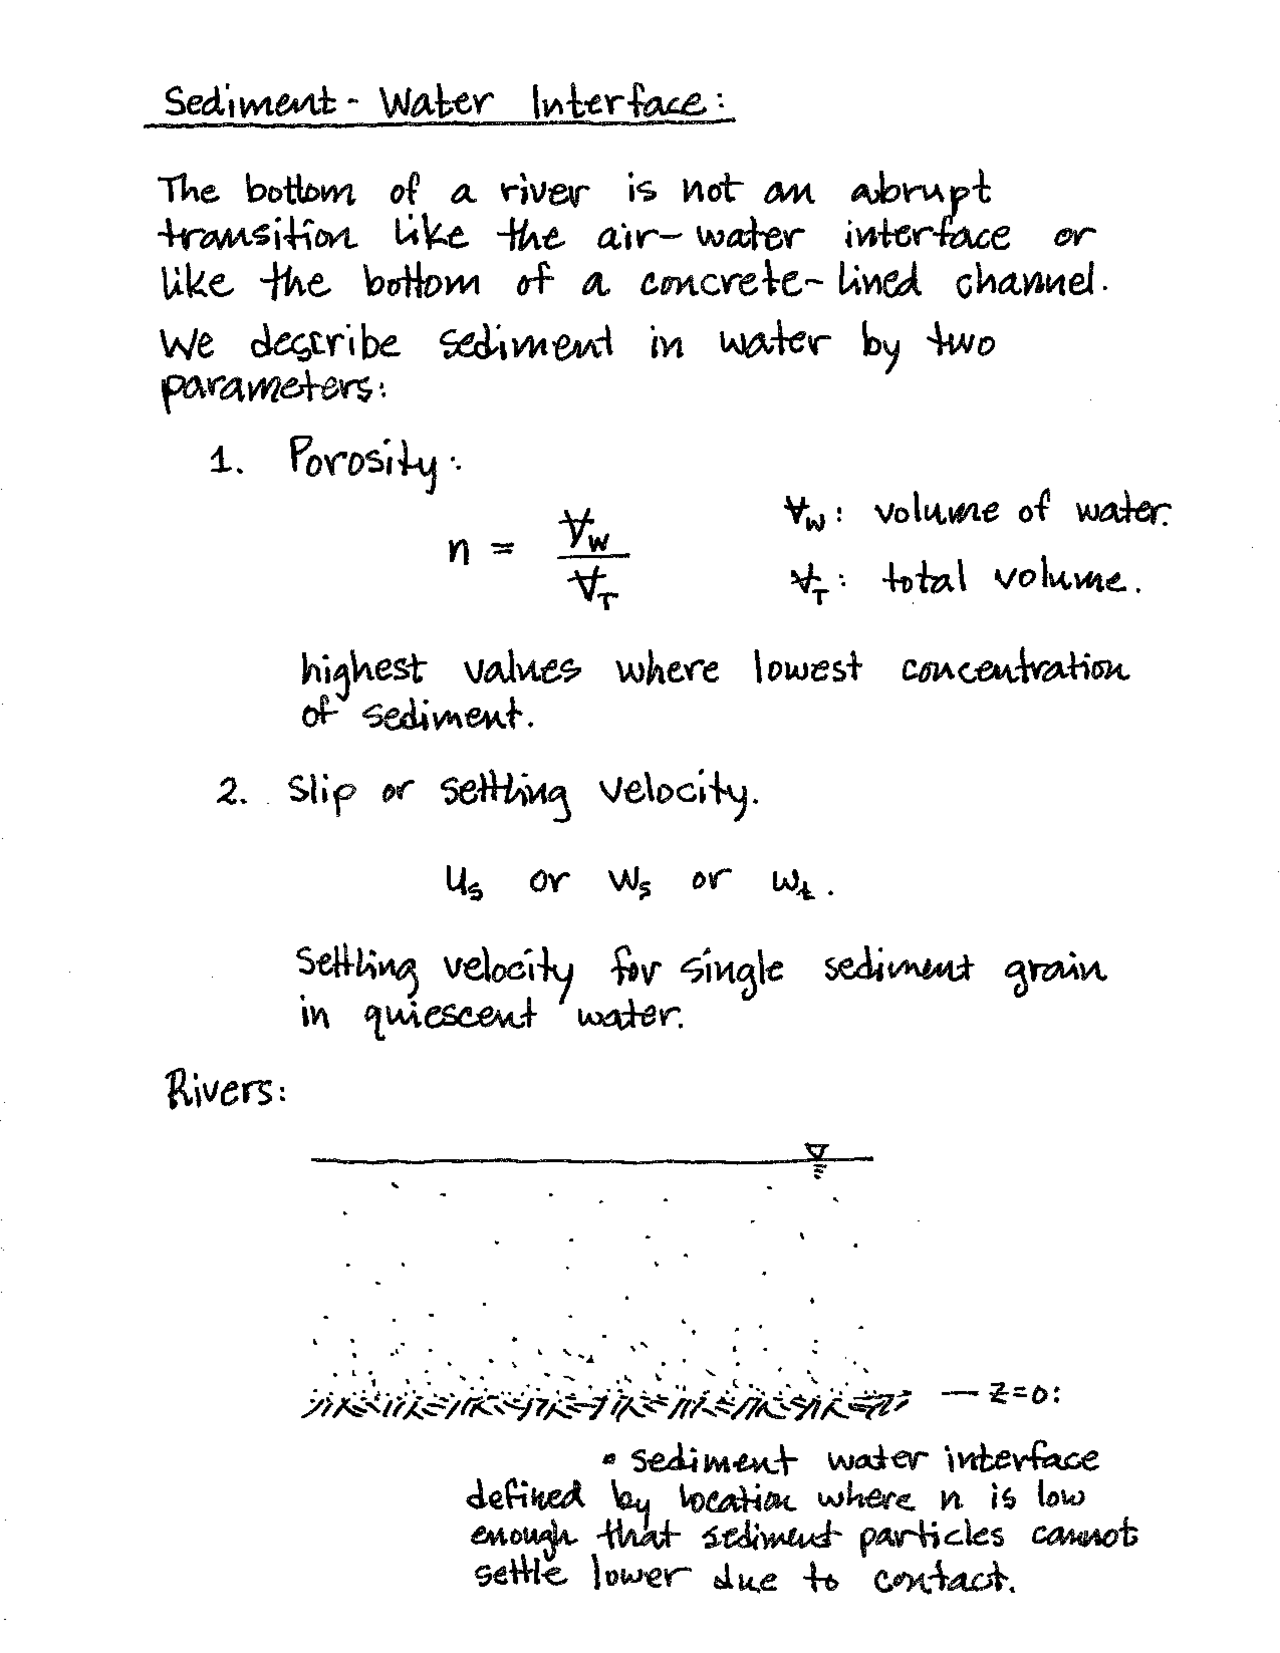 Sediment - Water Interface:
The bottom of a river is not an abrupt
transition like the air-water interface or
like the bottom of a concrete-lined channel.
We describe sediment in water by two
parameters:
1. Porosity:
n = V̶w / V̶T
V̶w: volume of water.
V̶T: total volume.
highest values where lowest concentration
of sediment.
2. Slip or settling velocity.
us or ws or wt.
Settling velocity for single sediment grain
in quiescent water.
Rivers:
— z=0:
• sediment water interface
defined by location where n is low
enough that sediment particles cannot
settle lower due to contact.